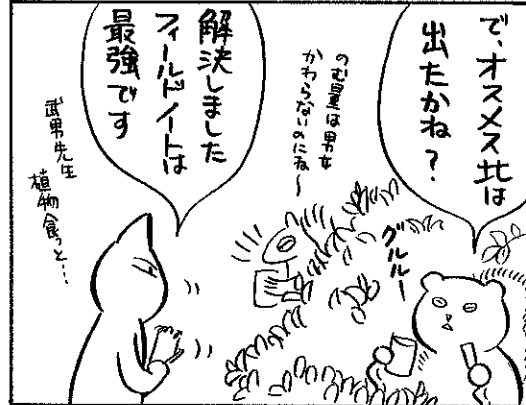 で、オスメス比は
出たかね？
のむ量は男女
かわらないのにね〜
グルルー
解決しました
フィールドノートは
最強です
武男先生
植物食っと…